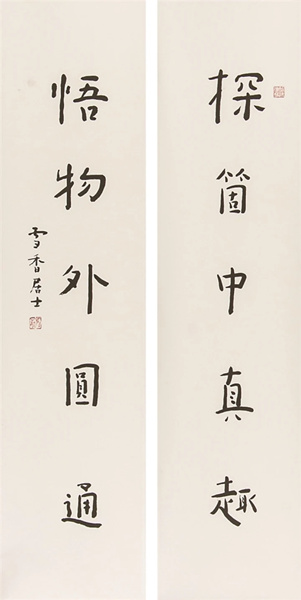 探箇中真趣
悟物外圓通
雪香居士